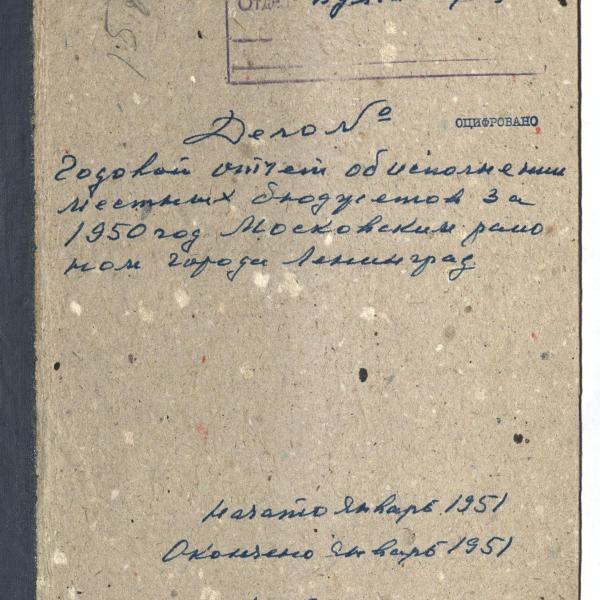 Отдел
Дело №
ОЦИФРОВАНО
Годовой отчет об исполнении
местных бюджетов за
1950 год Московским райо
ном города Ленинград
Начато Январь 1951
Окончено Январь 1951